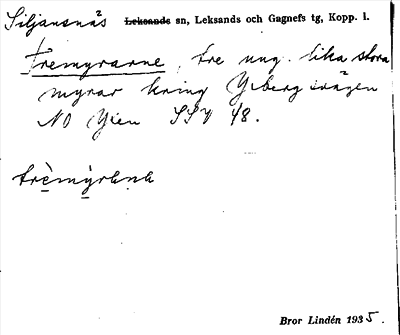 Siljansnäs Leksands sn, Leksands och Gagnefs tg, Kopp. l.
Tremyrarne, tre ung. lika stora
myrar kring Yxbergsvägen
NO Yxen SSV 48.
trèmỳrana
Bror Lindén 1935.